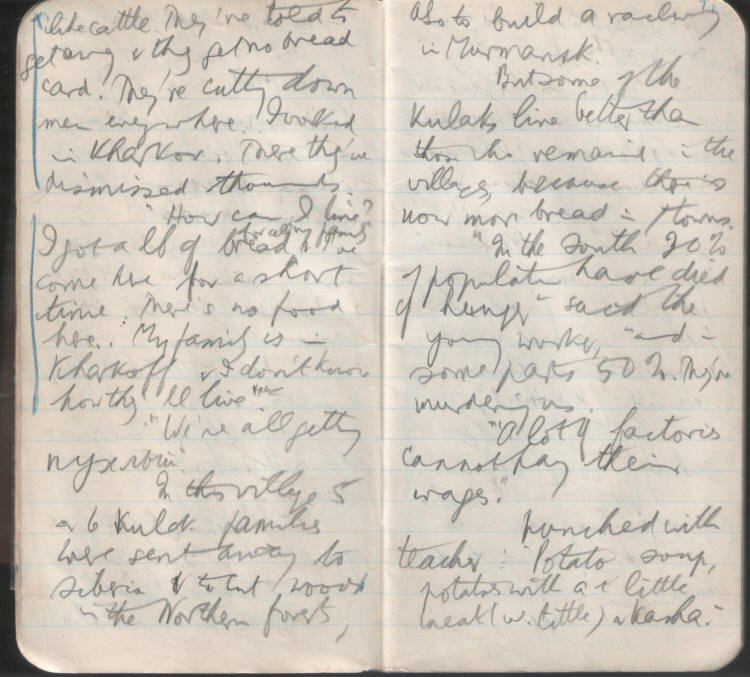 like cattle. They've told to
get away & they get no bread
card. They're cutting down
men everywhere. I worked
in Kharkov. There they've
dismissed thousands.
"How can I live?
I got a lb of bread for all my family & I've
come here for a short
time. There's no food
here. My family is in
Kharkoff & I don't know
how they'll live"
"We're all getting
In this village 5
or 6 Kulak families
were sent away to
Siberia & to cut wood
in the Northern forests,
Also to build a railway
in Murmansk.
But some of the
Kulaks live better than
those who remained in the
village, because there is
now more bread in towns.
"In the South 20%
of population have died
of hunger" said the
young worker, "and in
some parts 50%. They're
murdering us.
"A lot of factories
cannot pay their
wages."
Lunched with
teacher: "Potato soup,
potatoes with a little
meat (v. little) & Kasha.